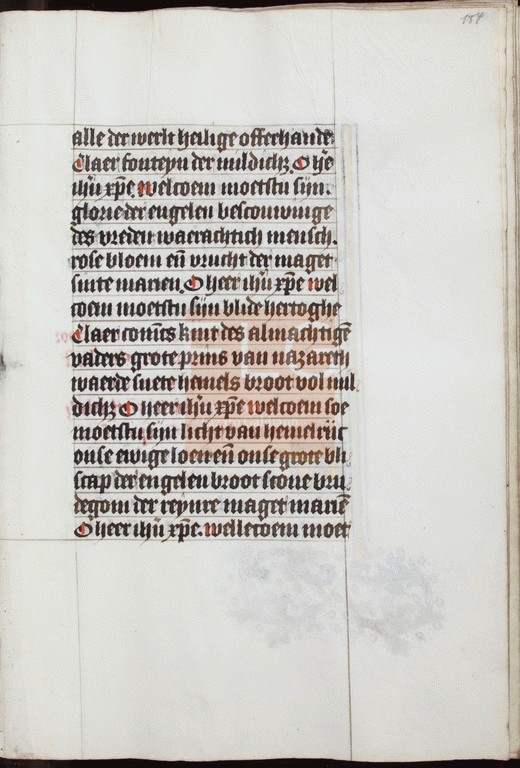 154
alle der werlt heilige offerhande
Claer fonteyn der mildichz. O h̄e
ihū xp̄e welcoem moetstu sijn.
glorie der engelen bescouwinge
des vreden waerachtich mensch.
rose bloem en̄ vrucht der maget
sinte marien. O heer ihū xp̄e wel
coem moetstu sijn blide hertoghe
Claer conīcs kint des almachtigē
vaders grote prins van nazareth
waerde suete hemels broot vol mil
dichz O heer ihū xp̄e welcoem soe
moetstu sijn licht van hemelrijc
onse ewige loen en̄ onse grote bli
scap der engelen broot scone bru
degom der reynre maget mariē
O heer ihū xp̄e. wellecoem moet